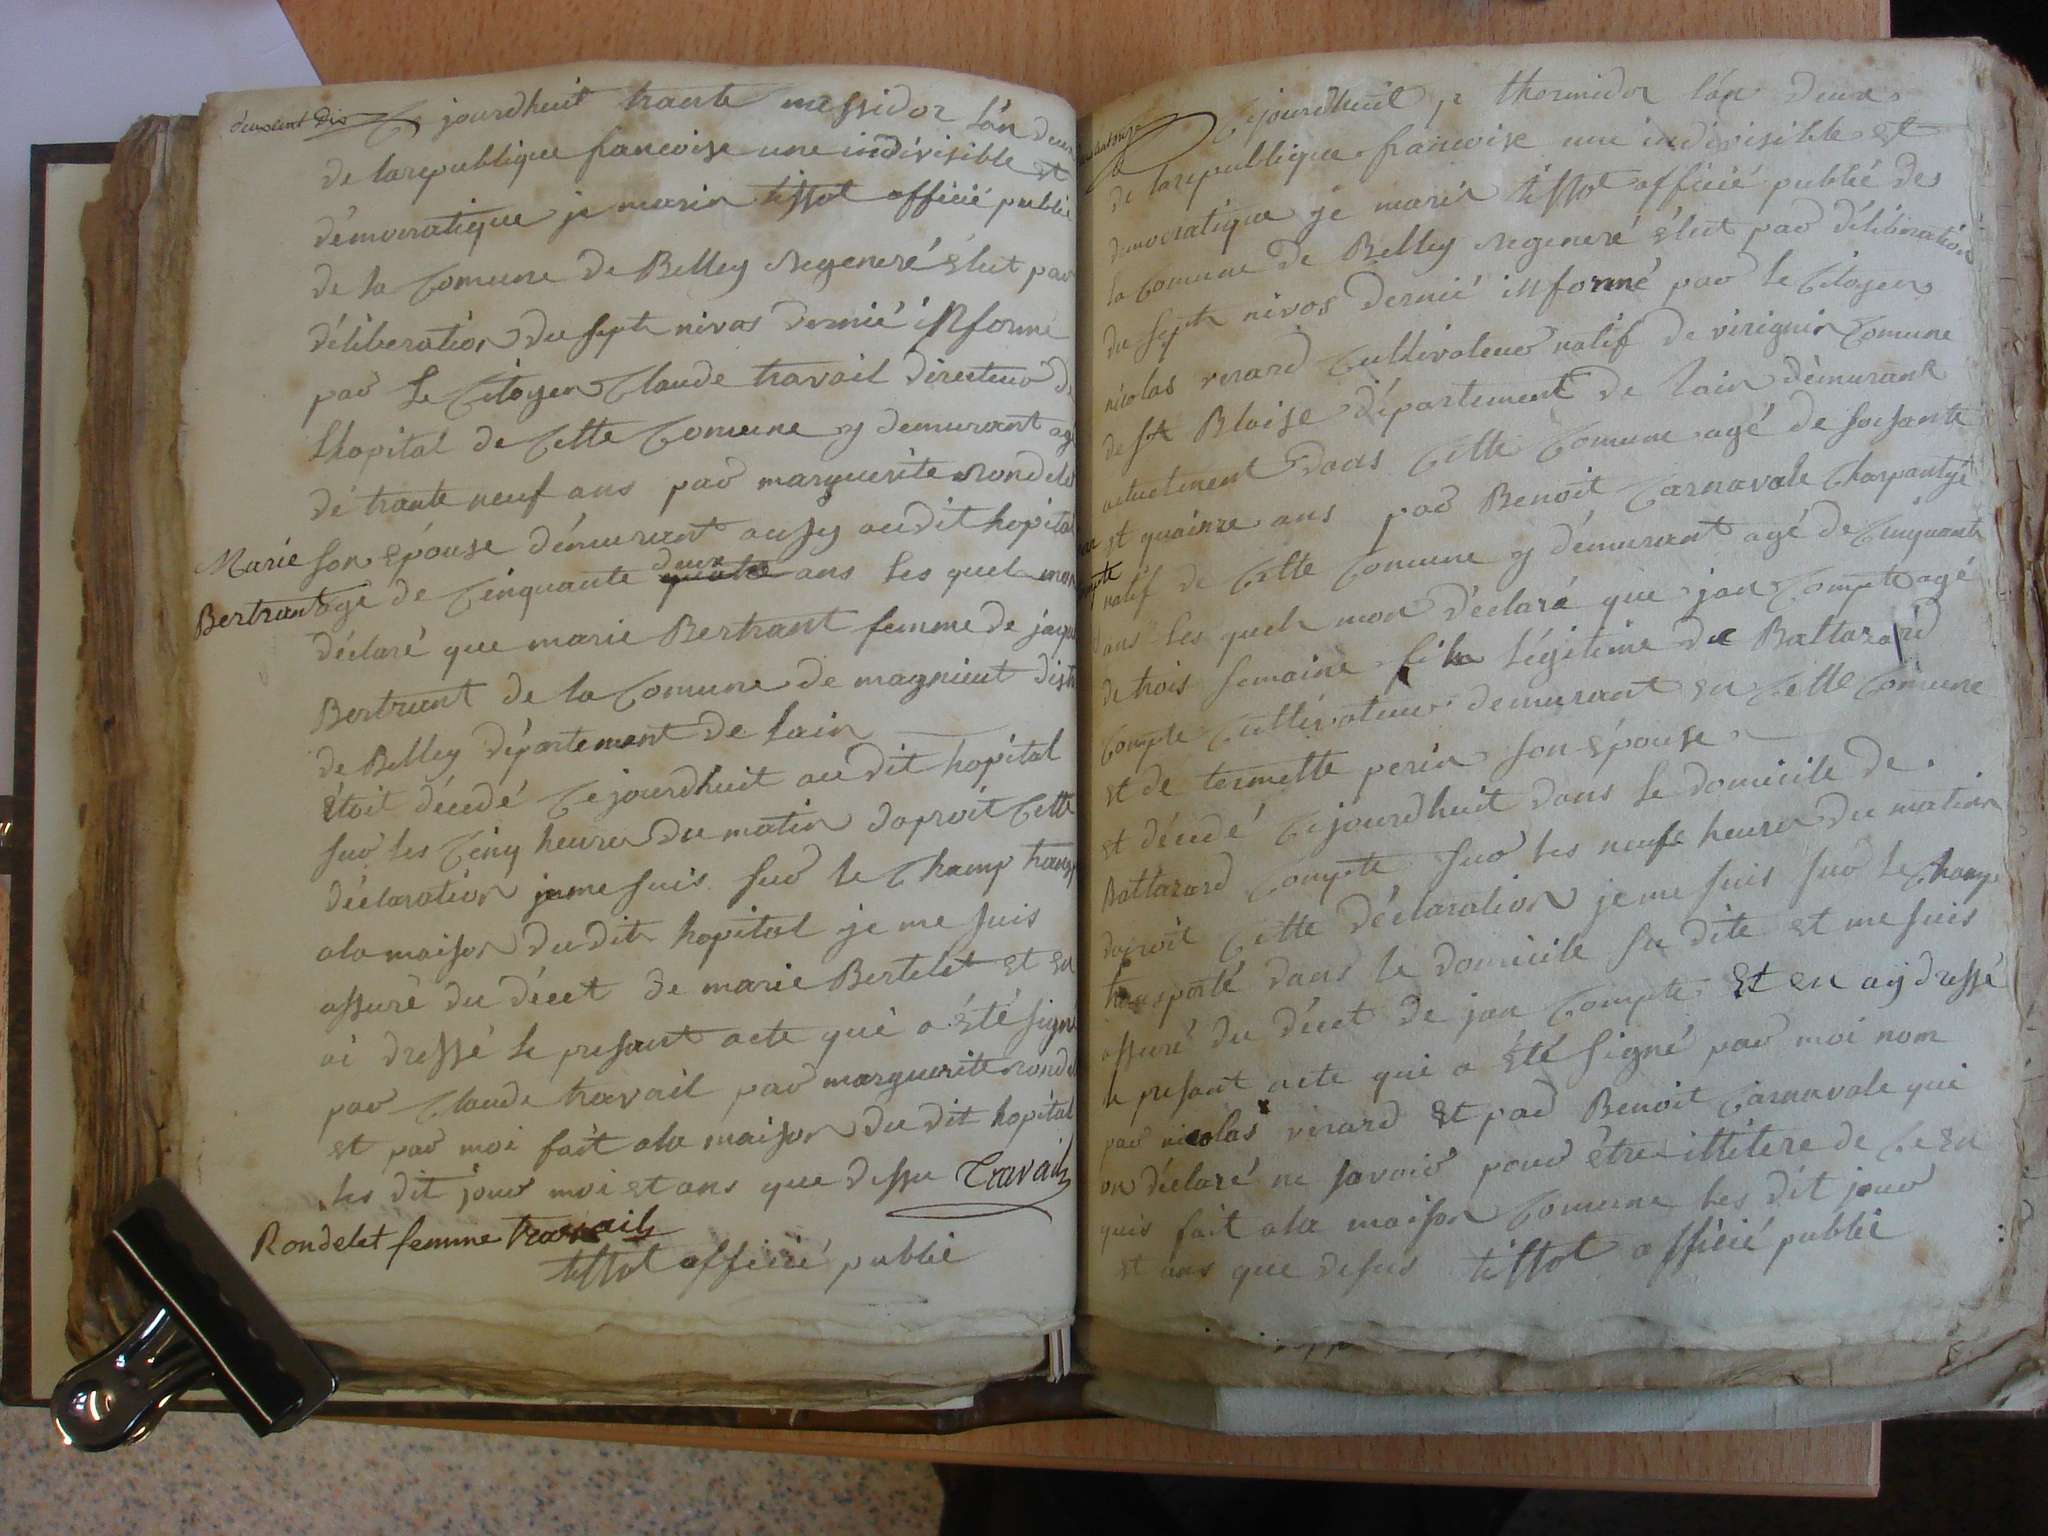 deuxcent dix
Cejourdhuit trante messidor l'an deux
de larepublique francoise une indivisible et
démocratique je marin tissot officié public
de la Comune de Belley Regeneré élut par
déliberation du sept nivos dernié informé
par le Citoyen Claude travail directeur de
lhopital de Cette Comune y demurant agé
de trante neuf ans par marguerite Rondelet
son épouse démurant aussy audit hopital
Marie
Bertrant
agé de Cinquante deux quatre ans les quel mon
déclaré que marie Bertrant femme de jaque
Bertrant de la Comune de magnieut distri
de Belley département de lain
étoit décédé Cejourdhuit audit hopital
sur les Cinq heures du matin daproit Cette
déclaration jeme suis sur le Champ transp
ala maison dudit hopital je me suis
assuré du décet de marie Bertelet et en
ai dressé le presant acte qui a été signé
par Claude travail par marguerite rondel
et par moi fait ala maison du dit hopital
les dit jour moi et ans que dessu Travail
Rondelet femme travail
tissot officié public
Cejourdhuit 1er thermidor lán deux
de larepublique francoise une indivisible et
democratique je marin tissot officié public de
la Comune de Belley Regeneré élut par déliberation
du sept nivos dernié informé par le Citoyen
nicolas verard Cultivateur natif de virignin Comune
de st Blaise département de lain démurant
actuelment dans Cette Comune agé de soisante
et quainze ans par Benoit Carnavale Charpantié
natif de Cette Comune y démurant agé de Cinquante
ans les quels mon déclaré que jan Compte agé
de trois semaine fils légitime de Baltazard
Compte Cultivateur demurant en Cette Comune
et de termette perin son épouse
et décédé Cejourdhuit dans le domicile de
Baltazard Compte sur les neufs heures du matin
daproit Cette déclaration je me suis sur le Champ
transporté dans le domicile su dite et me suis
assuré du décet de jan Compte et en ay dressé
le presant acte qui a été signé par moi non
par nicolas verard et par Benoit Carnavale qui
on déclaré ne savoir pour être illitere de Ce en
quis fait ala maison Comune les dit jour
et ans que desus tissot officié public